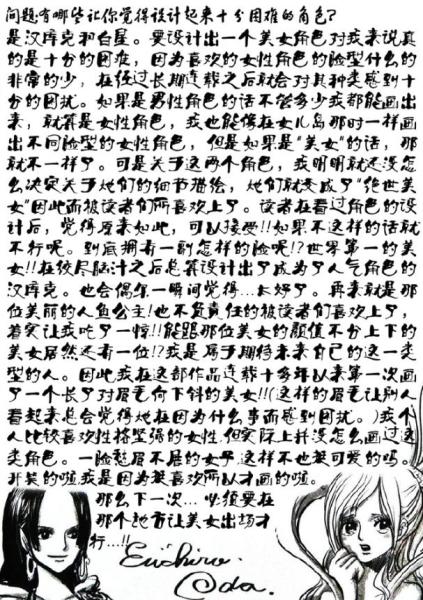 问题:有哪些让你觉得设计起来十分困难的角色?
是汉库克和白星。要设计出一个美女角色对我来说真
的是十分的困难,因为喜欢的女性角色的脸型什么的
非常的少,在经过长期连载之后就会对其种类感到十
分的困扰。如果是男性角色的话不管多少我都能画出
来,就算是女性角色,我也能像在女儿岛那时一样画
出不同脸型的女性角色,但是如果是"美女"的话,那
就不一样了。可是关于这两个角色,我明明就还没怎
么决定关于她们的细节描绘,她们就变成了"绝世美
女"因此而被读者们所喜欢上了。读者在看过角色的设
计后,觉得原来如此,可以接受!!如果不这样的话就
不行呢。到底拥有一副怎样的脸呢!?世界第一的美
女!!在绞尽脑汁之后总算设计出了成为了人气角色的
汉库克。也会偶尔一瞬间觉得…太好了。再来就是那
位美丽的人鱼公主!也不负责任的被读者们喜欢上了,
着实让我吃了一惊!!能跟那位美女的颜值不分上下的
美女居然还有一位!?我是属于期待未来自己的这一类
型的人。因此我在这部作品连载十多年以来第一次画
了一个长了对眉毛向下斜的美女!!(这样的眉毛让别人
看起来总会觉得她在因为什么事而感到困扰。)我个
人比较喜欢性格坚强的女性,但实际上并没怎么画过这
类角色。一脸愁眉不展的女子,这样不也挺可爱的吗。
开笑的啦,我是因为挺喜欢所以才画的啦。
那么下一次…必须要在
那个地方让美女出场才
行…!!
Eiichiro
Oda.